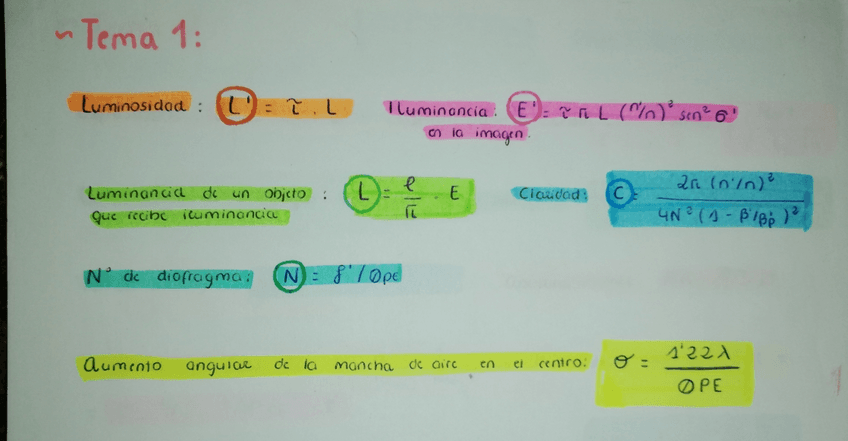 ~ Tema 1:
Luminosidad : L' = τ . L
Iluminancia. E' = τ π L (n'/n)² sen² σ'
en la imagen.
Luminancia de un objeto : L = ρ/π . E
que recibe iluminancia
Claridad: C = 2π (n'/n)² / 4N² (1 - β'/β'p)²
Nº de diafragma: N = f' / ØPE
Aumento angular de la mancha de aire en el centro: σ = 1'22λ / ØPE
1